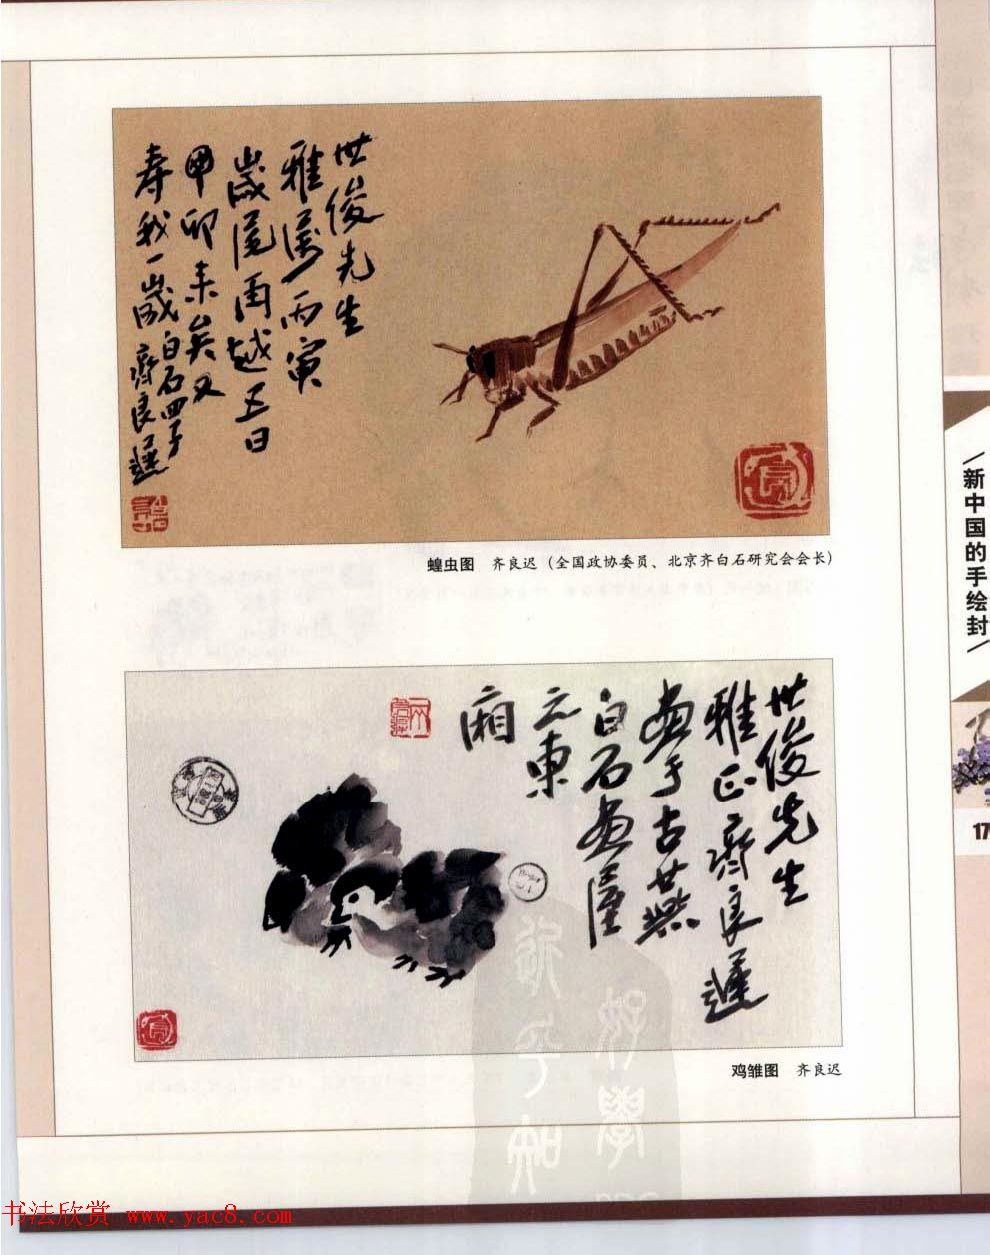 世俊先生
雅属丙寅
岁尾再越五日
甲卯来矣又
寿我一岁
白石四子
齐良遲
蝗虫图 齐良迟（全国政协委员、北京齐白石研究会会长）
世俊先生
雅正齊良遲
画于古燕
白石画屋
元東
廂
鸡雏图 齐良迟
新中国的手绘封
17
书法欣赏 www.yac8.com